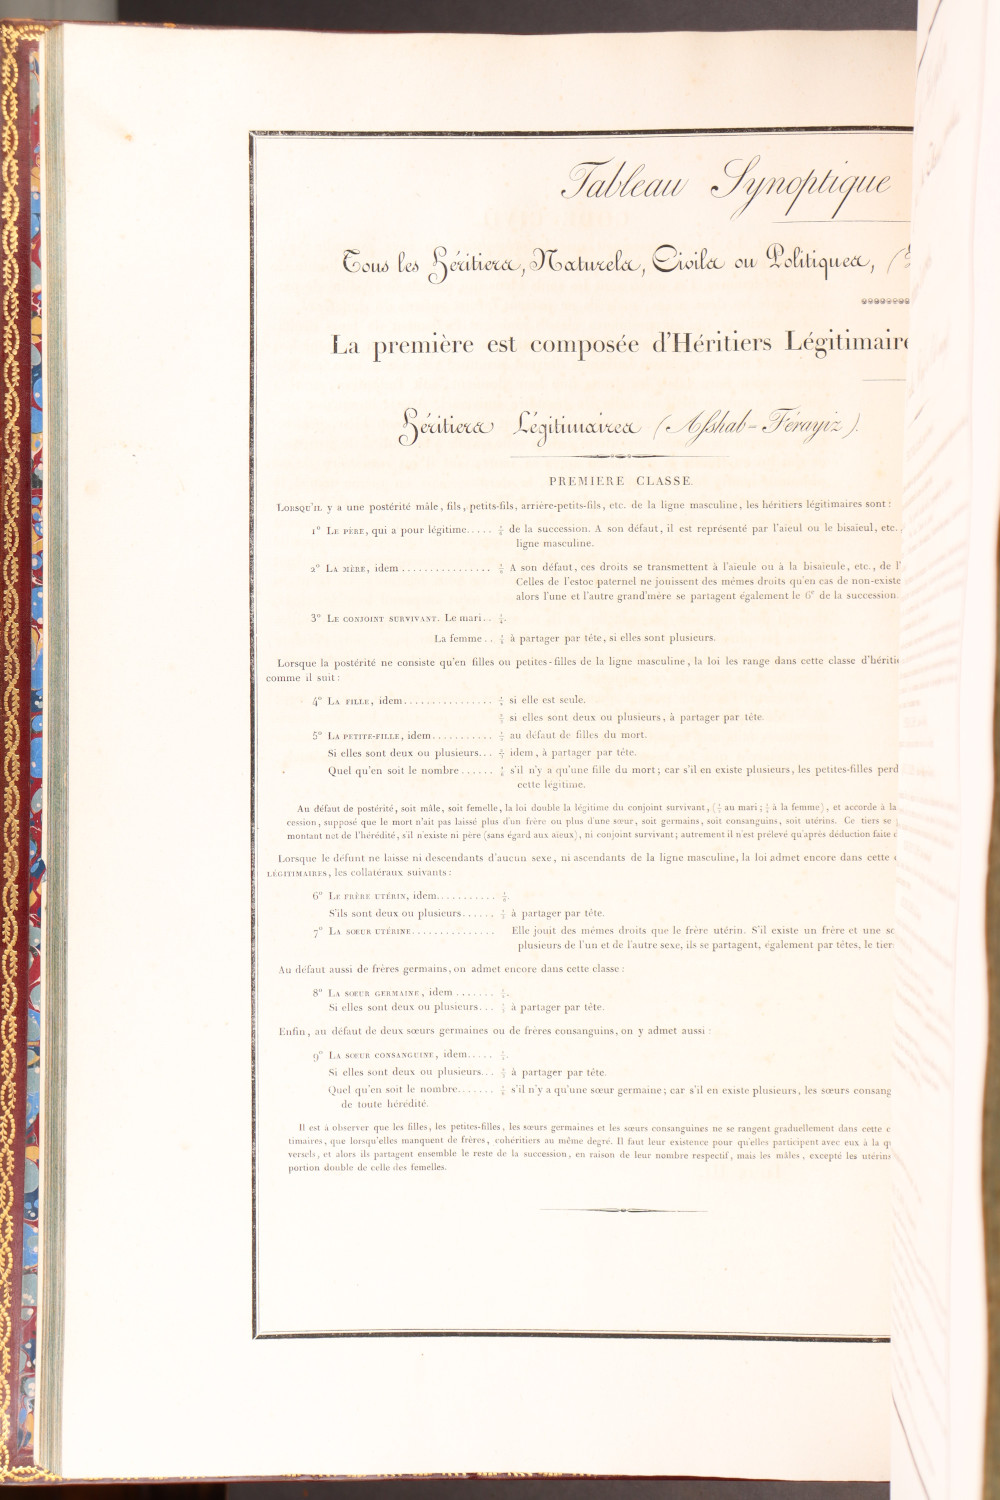 Tableau Synoptique
Tous les Héritiers, Naturels, Civils ou Politiques, (
La première est composée d'Héritiers Légitimaire
Héritiers Légitimaires (Asshab-Férayiz).
PREMIERE CLASSE.
Lorsqu'il y a une postérité mâle, fils, petits-fils, arrière-petits-fils, etc. de la ligne masculine, les héritiers légitimaires sont :
1° Le père, qui a pour légitime..... de la succession. A son défaut, il est représenté par l'aïeul ou le bisaïeul, etc.,
ligne masculine.
2° La mère, idem ............... A son défaut, ces droits se transmettent à l'aïeule ou à la bisaïeule, etc., de l'
Celles de l'estoc paternel ne jouissent des mêmes droits qu'en cas de non-existe
alors l'une et l'autre grand'mère se partagent également le 6e de la succession.
3° Le conjoint survivant. Le mari..
La femme.. à partager par tête, si elles sont plusieurs.
Lorsque la postérité ne consiste qu'en filles ou petites-filles de la ligne masculine, la loi les range dans cette classe d'hériti
comme il suit :
4° La fille, idem............... si elle est seule.
si elles sont deux ou plusieurs, à partager par tête.
5° La petite-fille, idem.......... au défaut de filles du mort.
Si elles sont deux ou plusieurs... idem, à partager par tête.
Quel qu'en soit le nombre ...... s'il n'y a qu'une fille du mort; car s'il en existe plusieurs, les petites-filles perd
cette légitime.
Au défaut de postérité, soit mâle, soit femelle, la loi double la légitime du conjoint survivant, ( au mari; à la femme), et accorde à la
cession, supposé que le mort n'ait pas laissé plus d'un frère ou plus d'une sœur, soit germains, soit consanguins, soit utérins. Ce tiers se
montant net de l'hérédité, s'il n'existe ni père (sans égard aux aïeux), ni conjoint survivant; autrement il n'est prélevé qu'après déduction faite
Lorsque le défunt ne laisse ni descendants d'aucun sexe, ni ascendants de la ligne masculine, la loi admet encore dans cette
légitimaires, les collatéraux suivants :
6° Le frère utérin, idem..........
S'ils sont deux ou plusieurs...... à partager par tête.
7° La sœur utérine.............. Elle jouit des mêmes droits que le frère utérin. S'il existe un frère et une sœ
plusieurs de l'un et de l'autre sexe, ils se partagent, également par têtes, le tier
Au défaut aussi de frères germains, on admet encore dans cette classe :
8° La sœur germaine, idem .......
Si elles sont deux ou plusieurs... à partager par tête.
Enfin, au défaut de deux sœurs germaines ou de frères consanguins, on y admet aussi :
9° La sœur consanguine, idem.....
Si elles sont deux ou plusieurs... à partager par tête.
Quel qu'en soit le nombre....... s'il n'y a qu'une sœur germaine; car s'il en existe plusieurs, les sœurs consang
de toute hérédité.
Il est à observer que les filles, les petites-filles, les sœurs germaines et les sœurs consanguines ne se rangent graduellement dans cette c
timaires, que lorsqu'elles manquent de frères, cohéritiers au même degré. Il faut leur existence pour qu'elles participent avec eux à la q
versels, et alors ils partagent ensemble le reste de la succession, en raison de leur nombre respectif, mais les mâles, excepté les utérins
portion double de celle des femelles.